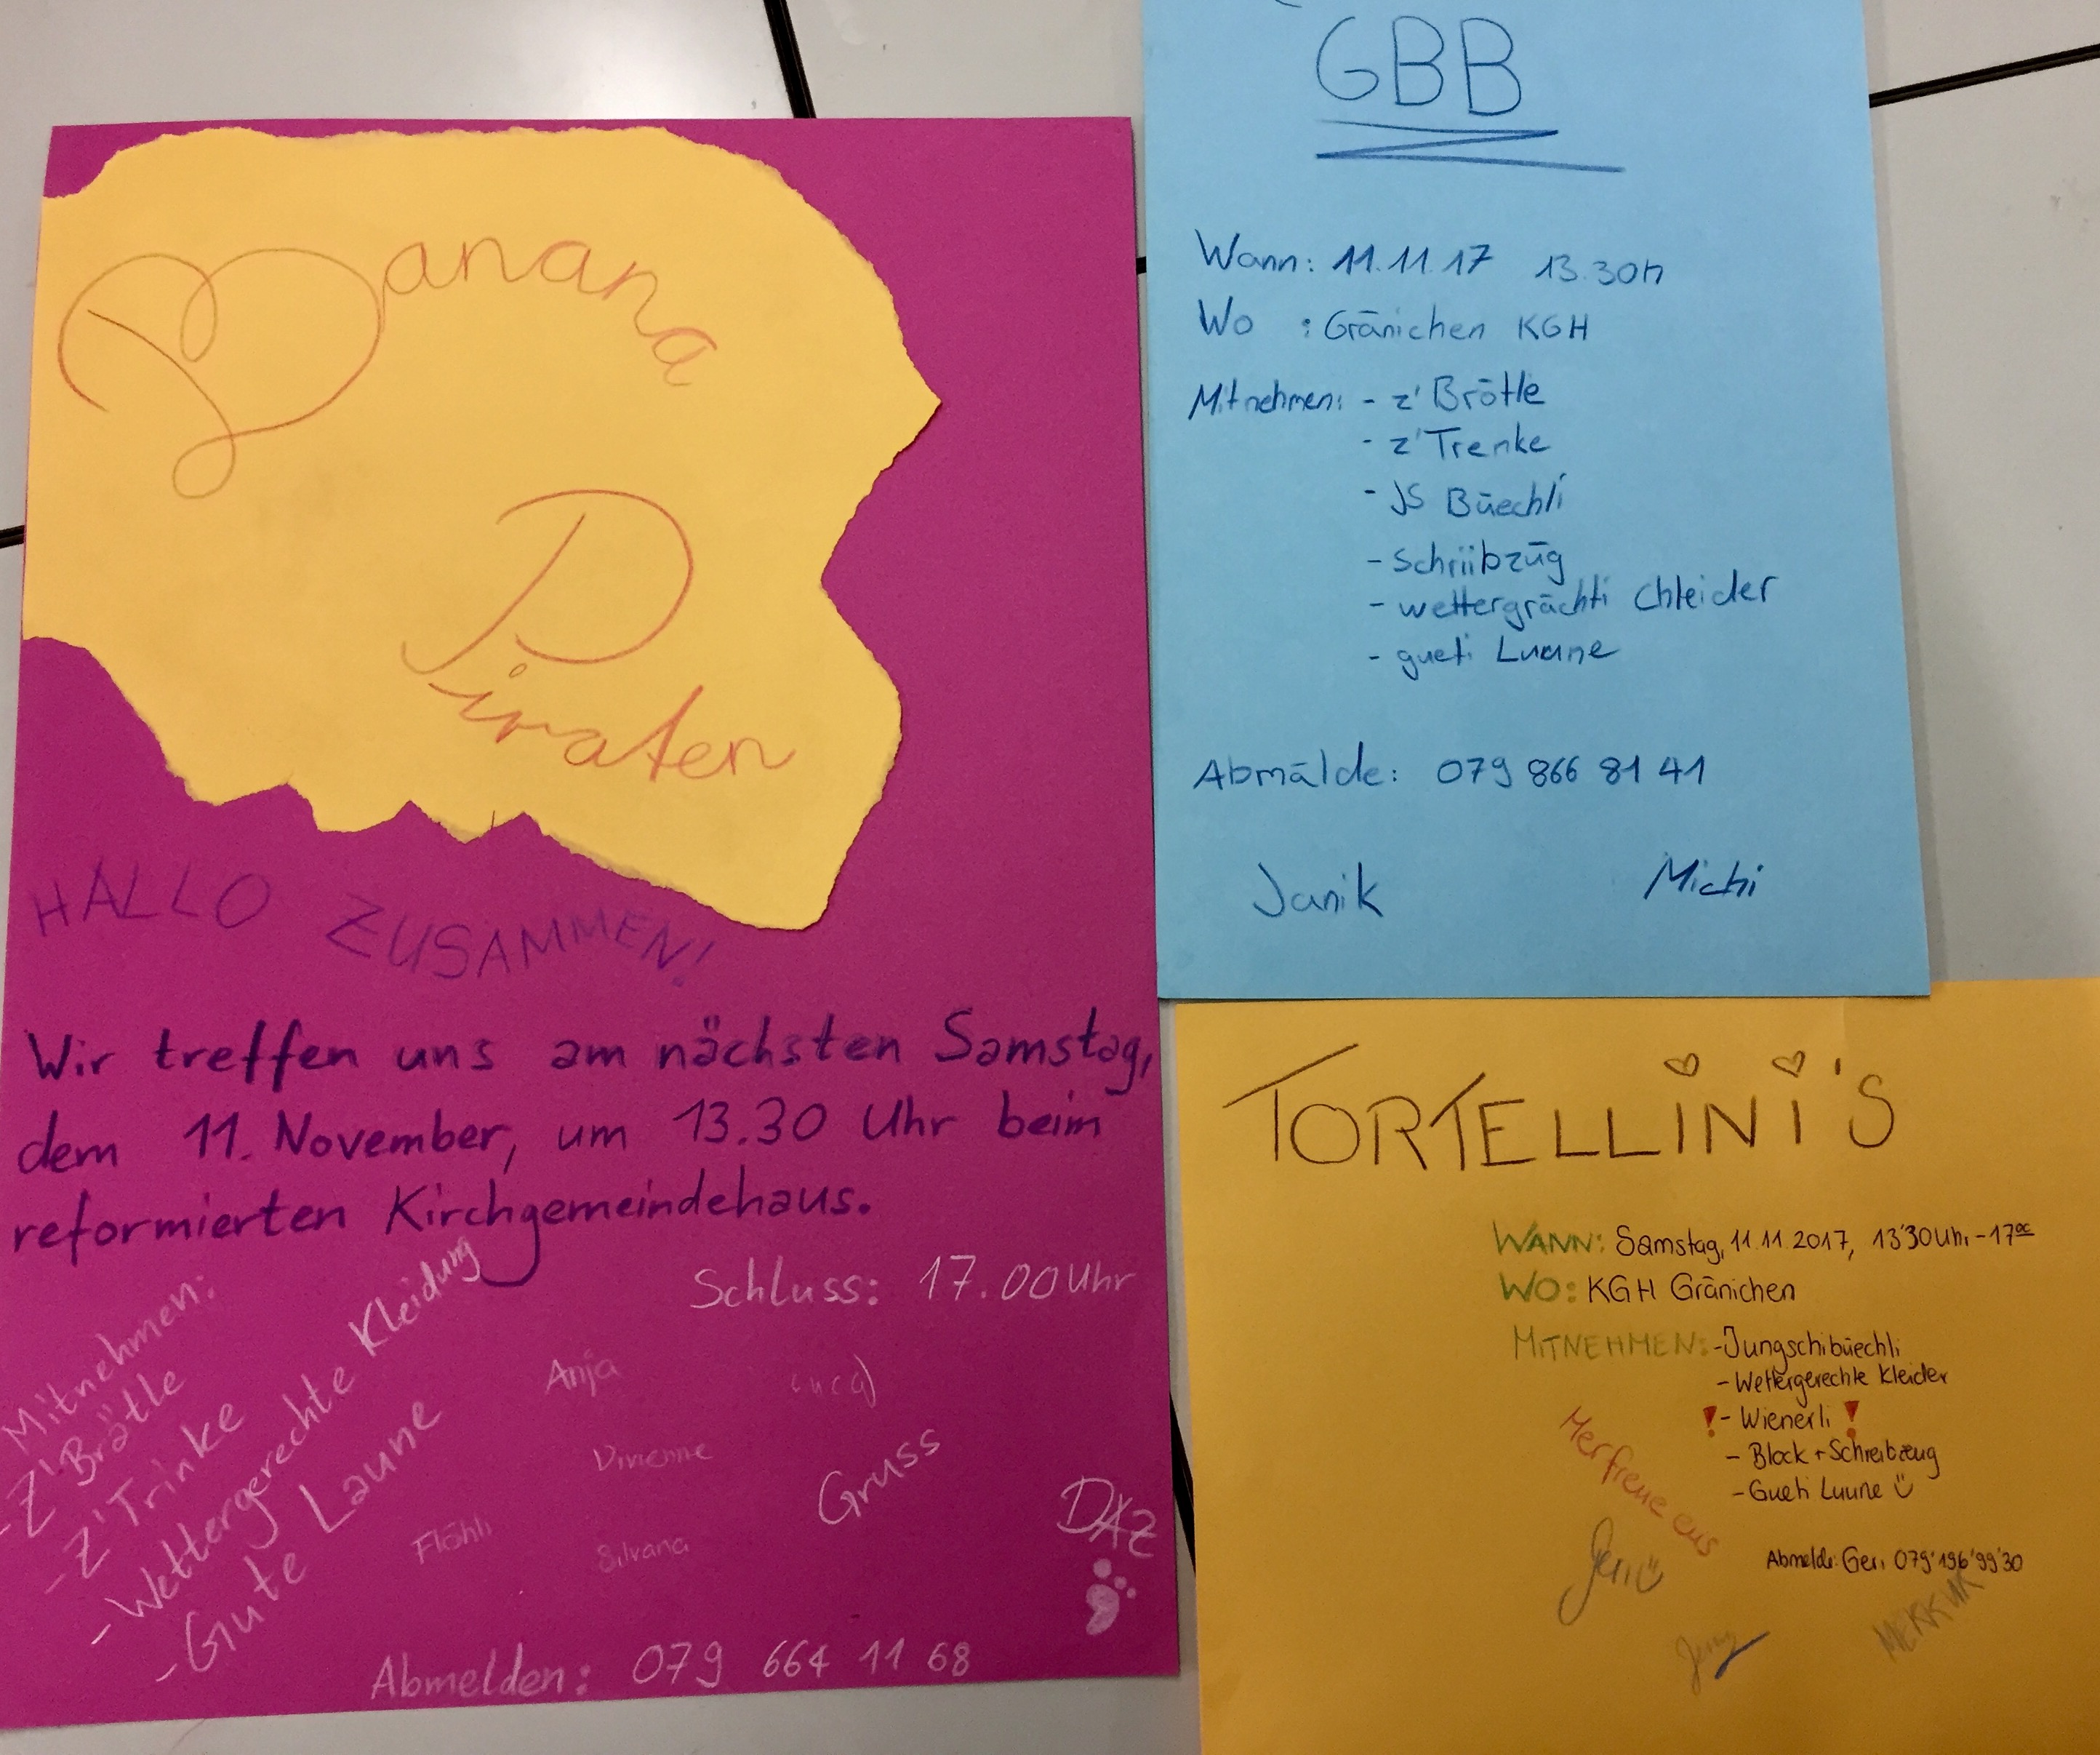 Banana
Piraten
HALLO ZUSAMMEN!
Wir treffen uns am nächsten Samstag,
dem 11. November, um 13.30 Uhr beim
reformierten Kirchgemeindehaus.
Schluss: 17.00 Uhr
Mitnehmen:
- Z'Brätle
- Z'Trinke
- Wettergerechte Kleidung
- Gute Laune
Anja
Vivienne
Flöhli
Silvana
Gruss
DAZ
Abmelden: 079 664 11 68
GBB
Wann: 11.11.17 13.30h
Wo : Gränichen KGH
Mitnehmen: - z'Brötle
- z'Trenke
- JS Büechli
- Schriibzüg
- wettergrächti Chleider
- gueti Luune
Abmälde: 079 866 81 41
Janik Michi
TORTELLiNi'S
WANN: Samstag, 11.11.2017, 13'30 Uhr - 17 00
WO: KGH Gränichen
MiTNEHMEN: - Jungschibüechli
- Wettergerechte Kleider
! - Wienerli !
- Block + Schreibzeug
- Gueti Luune ☺
Mer freue eus
Abmelde: Geri, 079'196'99'30
Geri ☺